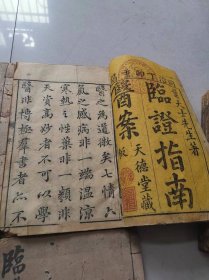 天士先生著
臨證指南
醫案
天德堂藏板
醫之為道微矣七情六
氣之感病非一端溫涼
寒熱之性藥非一類非
天資高妙者不可以學
醫非博極群書者亦不
臨